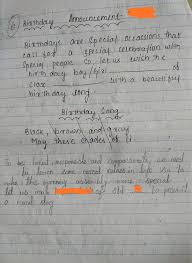 Birthday Announcement
Birthdays are special occasions that
call for a special celebration with
special people so let us wish the
birthday boy/girl of
class with a beautiful
birthday song
Birthday Song
Black, brown and gray
May these shades of
To be kind, responsible and compassionate, we need
to learn some moral
make this morning assembly more special
let us of std to present
a moral story